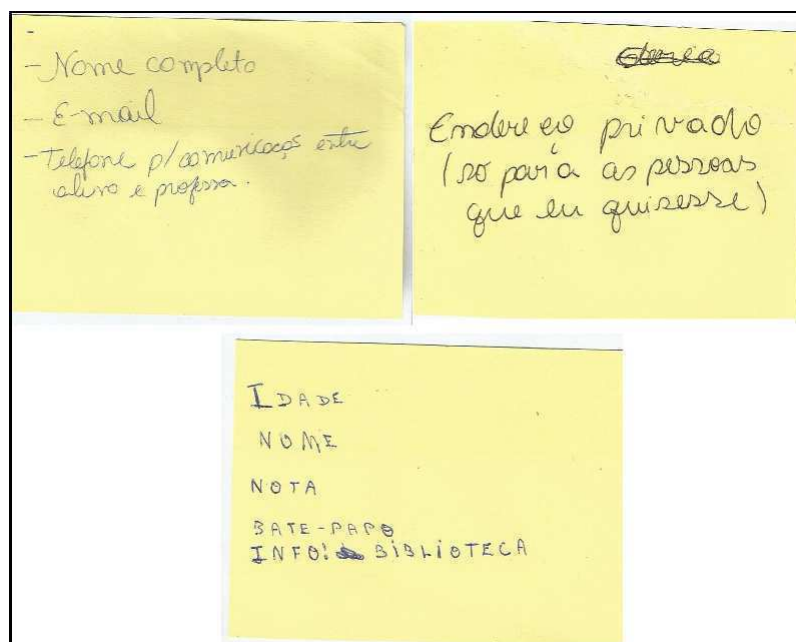 -
- Nome completo
- E-mail
- Telefone p/ comunicação entre
aluno e professor.
Endereço privado
(só para as pessoas
que eu quisesse)
IDADE
NOME
NOTA
BATE-PAPO
INFO: BIBLIOTECA